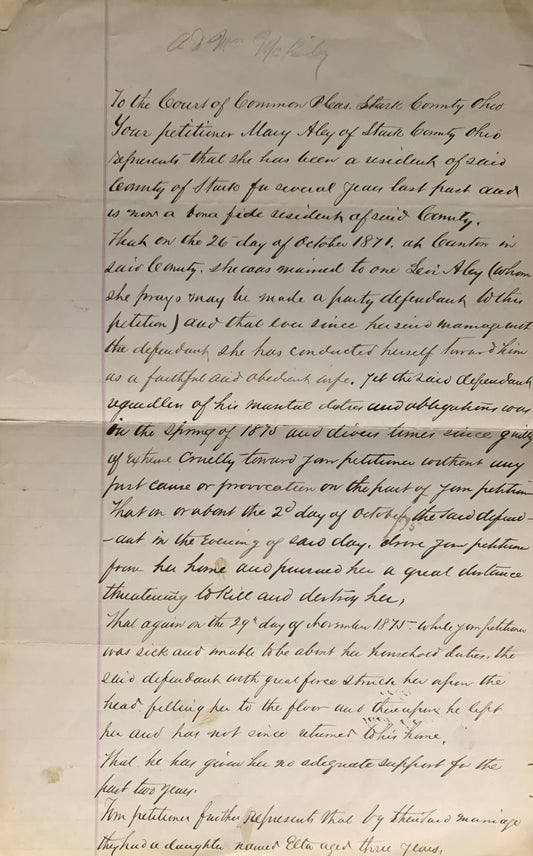 To the Court of Common Pleas. Stark County Ohio
Your petitioner Mary Aley of Stark County Ohio
represents that she has been a resident of said
County of Stark for several years last past and
is now a bona fide resident of said County.
That on the 26 day of October 1871. at Canton in
said County. she was married to one Levi Aley (whom
she prays may be made a party defendant to this
petition) and that ever since her said marriage with
the defendant she has conducted herself toward him
as a faithful and obedient wife. yet the said defendant
regardless of his marital duties and obligations was
in the spring of 1875 and divers times since guilty
of extreme cruelty toward your petitioner without any
just cause or provocation on the part of your petition
That on or about the 2d day of October 75 the said defend-
-ant in the Evening of said day. drove your petitioner
from her home and pursued her a great distance
threatening to kill and destroy her,
That again on the 29th day of November 1875. while your petitioner
was sick and unable to be about her household duties. the
said defendant with great force struck her upon the
head felling her to the floor and thereupon he left
her and has not since returned to his home.
That he has given her no adequate support for the
past two years.
Your petitioner further represents that by the said marriage
they had a daughter named Etta aged three years,